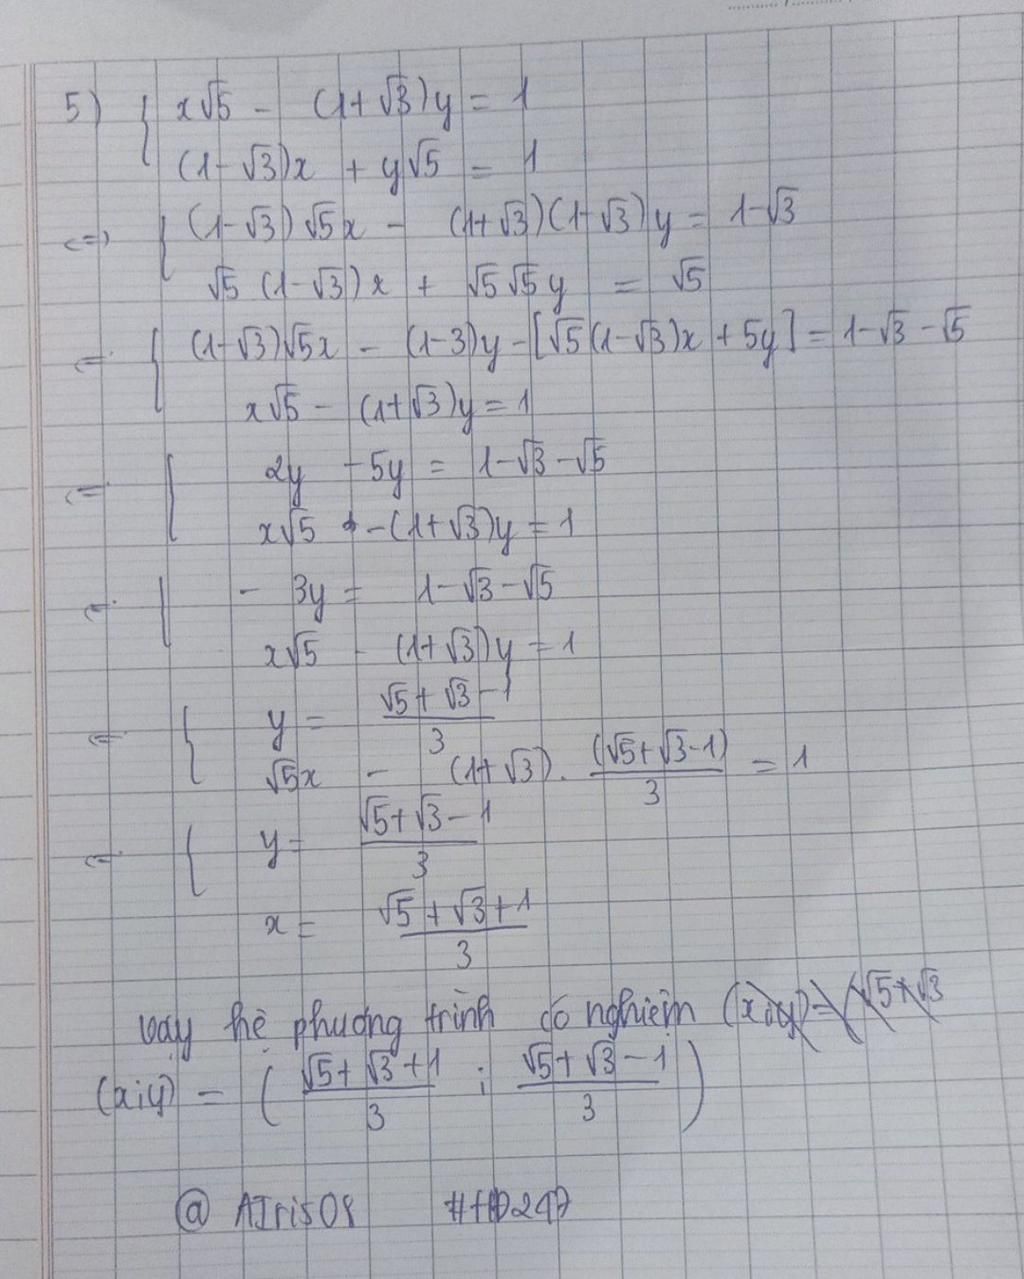 5) { x√5 - (1+√3)y = 1
(1-√3)x + y√5 = 1
<=> { (1-√3)√5x - (1+√3)(1-√3)y = 1-√3
√5(1-√3)x + √5√5y = √5
<= { (1-√3)√5x - (1-3)y - [√5(1-√3)x + 5y] = 1-√3-√5
x√5 - (1+√3)y = 1
<= { 2y - 5y = 1-√3-√5
x√5 - (1+√3)y = 1
<= { - 3y = 1-√3-√5
x√5 - (1+√3)y = 1
<= { y = (√5+√3-1)/3
√5x - (1+√3). (√5+√3-1)/3 = 1
<= { y = (√5+√3-1)/3
x = (√5+√3+1)/3
vậy hệ phương trình có nghiệm (x;y)=(√5+√3
(x;y) = ( (√5+√3+1)/3 ; (√5+√3-1)/3 )
@ AIris08